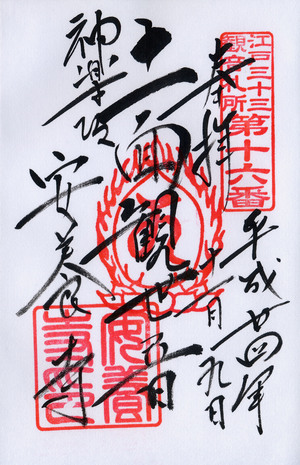 江戸三十三
観音札所
第十六番
奉拝
平成廿四年
十二月九日
十一面観世音
神楽坂
安養寺